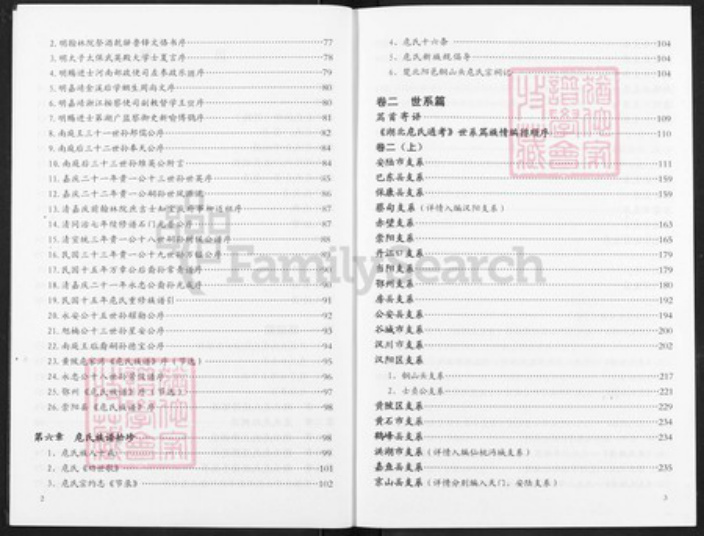 2. 明翰林院祭酒 序 77
3. 明太子太保武英殿大学士夏言序 78
4. 明赐进士河南都政使司左参政 序 79
5. 明嘉靖金溪后学 周尚文序 80
6. 明嘉靖浙江按察使司副 督学王 序 80
7. 明赐进士第湖广监察御史新喻傅鹗序 81
8. 南庭王三十一世孙邦儒公序 82
9. 南庭后三十二世孙奉先公序 84
10. 南庭后三十三世孙 公附言 84
11. 嘉庆二十一年贵一公十三世孙世英序 85
12. 嘉庆二十二年贵一公嗣孙世 86
13. 清嘉庆前翰林院庶吉士知 序 87
14. 清同治七年续修谱石门 序 87
15. 清宣统三年贵一公十八世嗣孙树 公谱序 88
16. 民国三十三年贵一公十九世孙万 公序 89
17. 民国十五年万章公后裔孙 序
18. 清嘉庆二十一年永忠公裔孙光 序
19. 民国十五年危氏重修族谱引 91
20. 永安公十五世孙耀勤公序 92
21. 旭楠公十三世孙星安公序 93
22. 南庭王临裔嗣孙德宝公序 94
23. 黄陂危家湾《危氏族谱》序(节选) 95
24. 永忠公十八世孙 谱序 96
25. 鄂州《危氏族谱》序(节选) 98
26. 崇阳县《危氏族谱》序 98
第六章 危氏族谱拾珍 98
1. 危氏族人十戒 99
2. 危氏《 》 101
3. 危氏宗约志《节录》 102
2
4. 危氏十六条 104
5. 危氏新族规倡导 104
6. 楚北阳邑铜山头危氏宗祠记 104
卷二 世系篇
篇首寄语 109
《湖北危氏通考》世系篇族情编排顺序 110
卷二(上)
安陆市支系 111
巴东县支系 159
保康县支系 159
蔡甸支系(详情入编汉阳支系)
赤壁支系 163
崇阳支系 165
丹江口支系 179
当阳支系 179
鄂州支系 180
房县支系 192
公安县支系 194
谷城市支系 200
汉川市支系 202
汉阳区支系
1. 铜山头支系 217
2. 士贵公支系 221
黄陂区支系 229
黄石市支系 234
鹤峰县支系 234
洪湖市支系(详情入编仙桃沔城支系)
嘉鱼县支系 235
京山县支系(详情分别编入天门、安陆支系)
3
FamilySearch